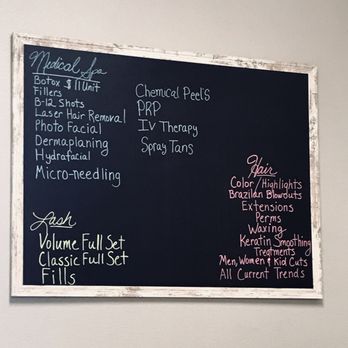 Medical Spa
Botox $11 Unit
Fillers
B-12 Shots
Laser Hair Removal
Photo Facial
Dermaplaning
Hydrafacial
Micro-needling
Chemical Peels
PRP
IV Therapy
Spray Tans
Lash
Volume Full Set
Classic Full Set
Fills
Hair
Color/Highlights
Brazilian Blowouts
Extensions
Perms
Waxing
Keratin Smoothing
Treatments
Men, Women & Kid Cuts
All Current Trends